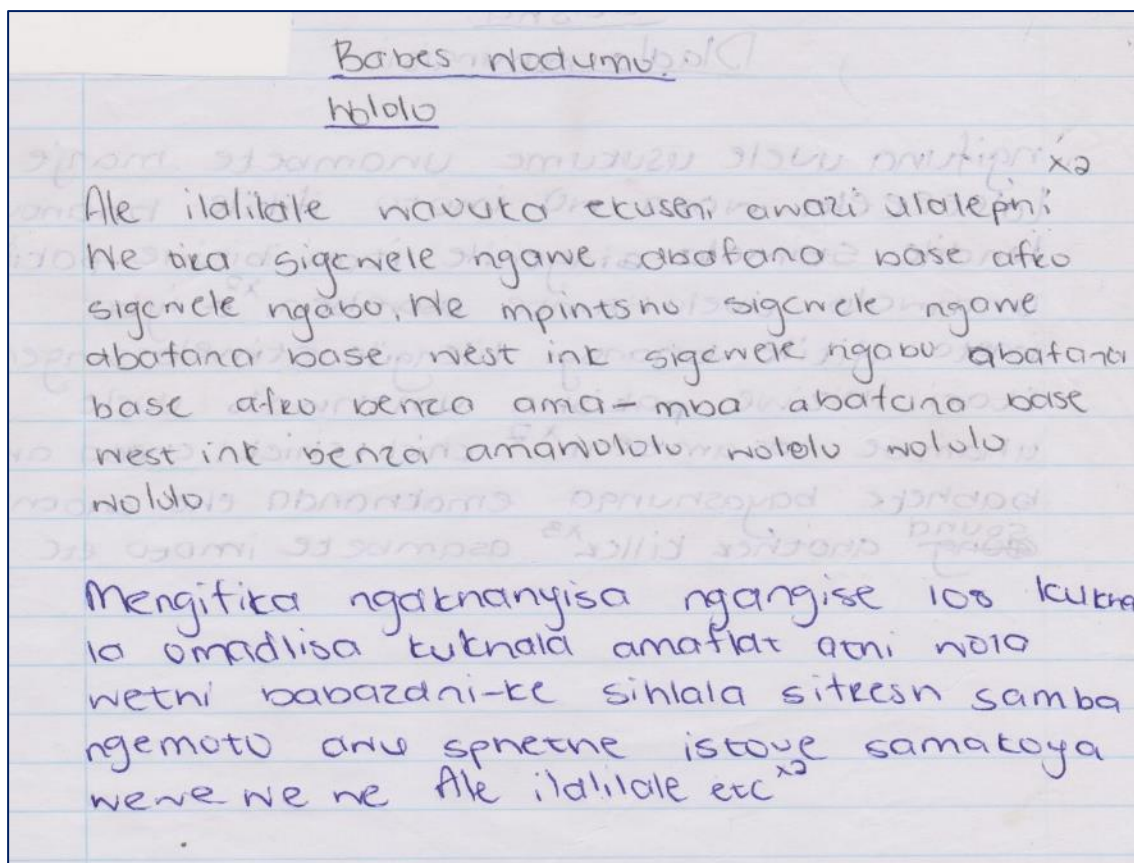 Babes Wodumo.
Wololo
x2
Ale ilalilale wavuka ekuseni awazi ulalephi
We sigcwele ngawe abafana base afro
sigcwele ngabo. We mpintshu sigcwele ngawe
abafana base west ink sigcwele ngabo abafana
base afro benza ama-mba abafana base
west ink benza amawololo wololo wololo
wololo
Mengifika ngakhanyisa ngangise 108 kukha
la omadlisa kukhala amaflat athi wola
wethi babazani-ke sihlala sikeesh samba
ngemoto anu sphethe istove samakoya
wewe we we Ale ilalilale etc x2